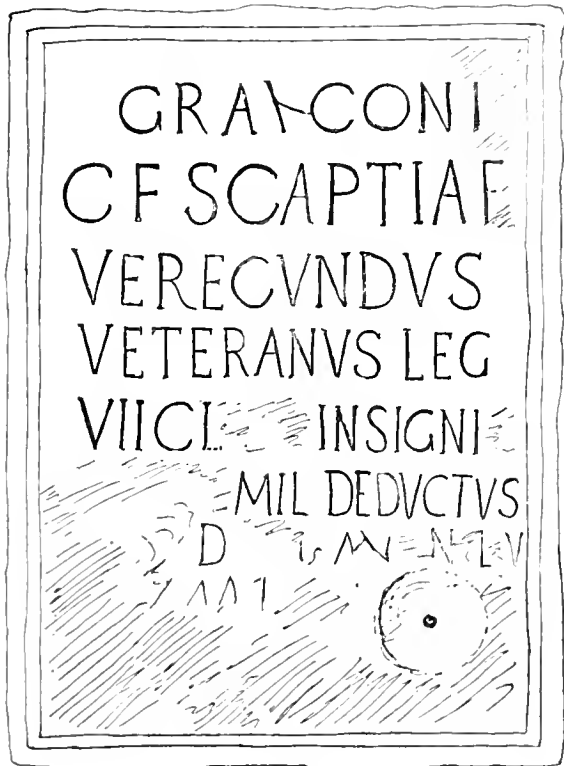 GRAⱵCONI
C F SCAPTIAF
VERECVNDVS
VETERANVS LEG
VII CL INSIGNI
MIL DEDVCTVS
D